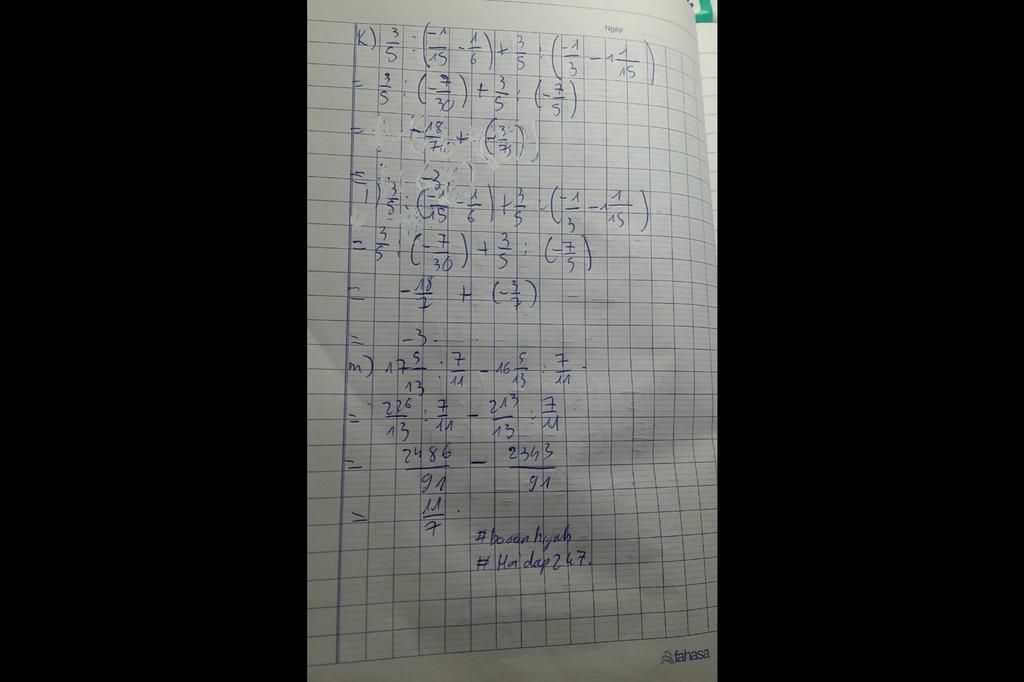 Ngày
K) 3/5 : (-1/15 - 1/6) + 3/5 : (-1/3 - 1 1/15)
= 3/5 : (-7/30) + 3/5 : (-7/5)
= -18/7 + (-3/7)
= -3
l) 3/5 : (-1/15 - 1/6) + 3/5 : (-1/3 - 1 1/15)
= 3/5 : (-7/30) + 3/5 : (-7/5)
= -18/7 + (-3/7)
= -3.
m) 17 5/13 : 7/11 - 16 5/13 : 7/11
= 226/13 : 7/11 - 213/13 : 7/11
= 2486/91 - 2343/91
= 11/7.
#Hoidap247.
fahasa